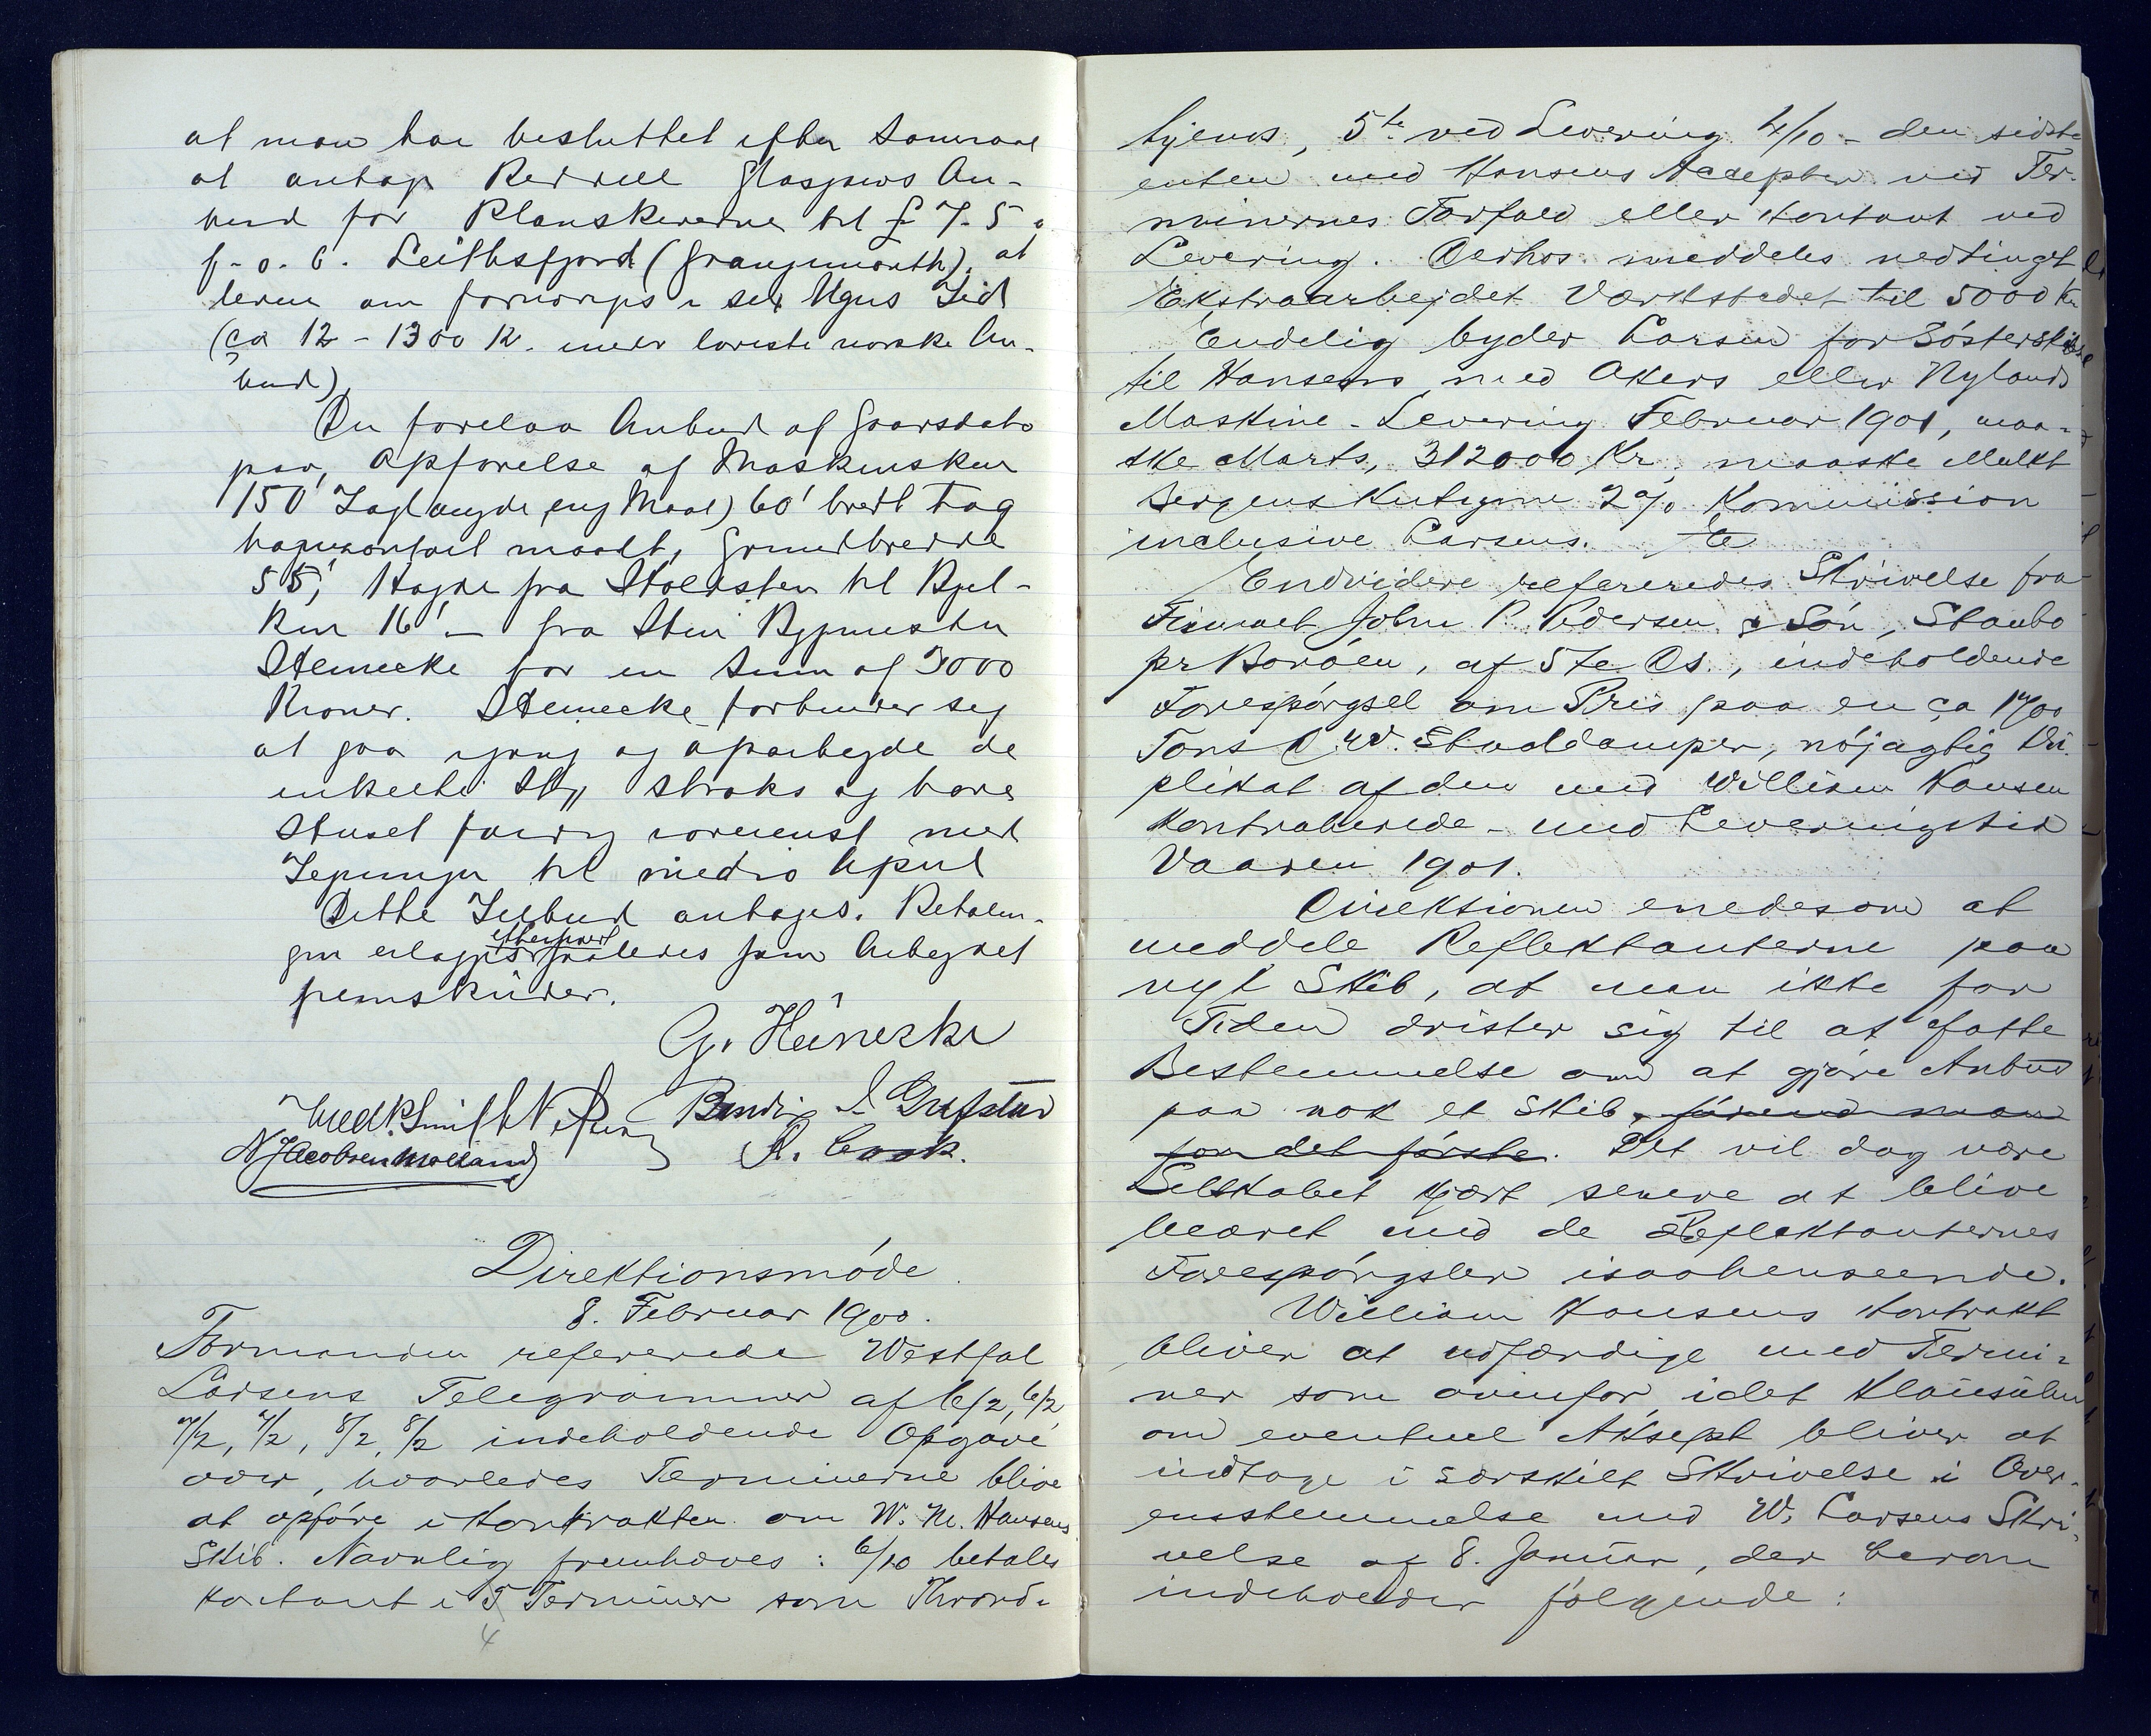 at man har besluttet efter Samraad
at antage Redrell Glasgows An-
bud for Planskererne til £ 7-5
f. o. b. Leithsfjord (Grangemouth), at
levere om fornødiges i sex Ugers Tid
(ca 12-1300 K. under laveste norske An-
bud)
Der forelaa Anbud af Gaarsdato
paa, Opførelse af Maskinskur
150' Taglængde eng Maal) 60' bredt Tag
horizontalt maalt, Grundbredde
55', Høyde fra Stolesten til Bjel-
ken 16' - fra Stein Bygmester
Steinecke for en Sum af 3000
Kroner. Steinecke forbinder sig
at gaa igang og oparbeyde de
enkelte St straks og have
Skuset færdig med
til medio April
Dette Tilbud antages. Betalin-
gen erlægges efterhvert saaledes som Arbeydet
fremskrider.
G. Heinecke
Fredk. Smith N. Bendix J. Grefstad
N Jacobsen Mølland R. Cook.
Direktionsmöde.
8. Februar 1900.
Formanden refererede Westfal
Larsens Telegrammer af 6/2, 6/2,
7/2, 7/2, 8/2, 8/2 indeholdende Opgave
over, hvorledes Terminerne blive
at opføre i Kontrakten om W. M. Hansens
Skib. Navnlig fremhæves: 6/10 betales
kontant i 5 Terminer som
4
5te ved Levering 4/10 - den sidste
enten med Hansens Accepter ved Ter-
minernes Forfald eller Kontant ved
Levering. Derhos meddeles nedtinget
Ekstraarbejdet Værkstedet til 5000 Kr
Endelig byder Larsen for Søsterskibe
til Hansens, med Akers eller Nylands
Maskine - Levering Februar 1901, maa-
ske Marts, 312000 Kr, maaske Mulkt
Bergenskutyme 2% Kommission
inclusive Larsens.
Endvidere refereredes Skrivelse fra
Firmaet John P. Pedersen & Sön, Staubo
pr Boröen, af 5te Ds., indeholdende
Forespörgsel om Pris paa en ca 1700
Tons D. W. Staaldamper, nöjagtig Du-
plikat af den med William Hansen
kontraherede - med Leveringstid
Vaaren 1901.
Direktionen enedes om at
meddele Reflektanterne paa
nyt Skib, at man ikke for
Tiden drister sig til at fatte
Bestemmelse om at gjöre Anbud
paa nok et Skib, förend man
for det förste. Det vil dog være
Selskabet kjært senere at blive
beæret med de Reflektanternes
Forespörgsler isaahenseende.
William Hansens Kontrakt
bliver at udfærdige med Termi-
ner som ovenfor, idet Klausulen
om eventuel Aksept bliver at
indtage i særskilt Skrivelse i Over-
ensstemmelse med W. Larsens Skri-
velse af 8. Januar, der herom
indeholder fölgende: